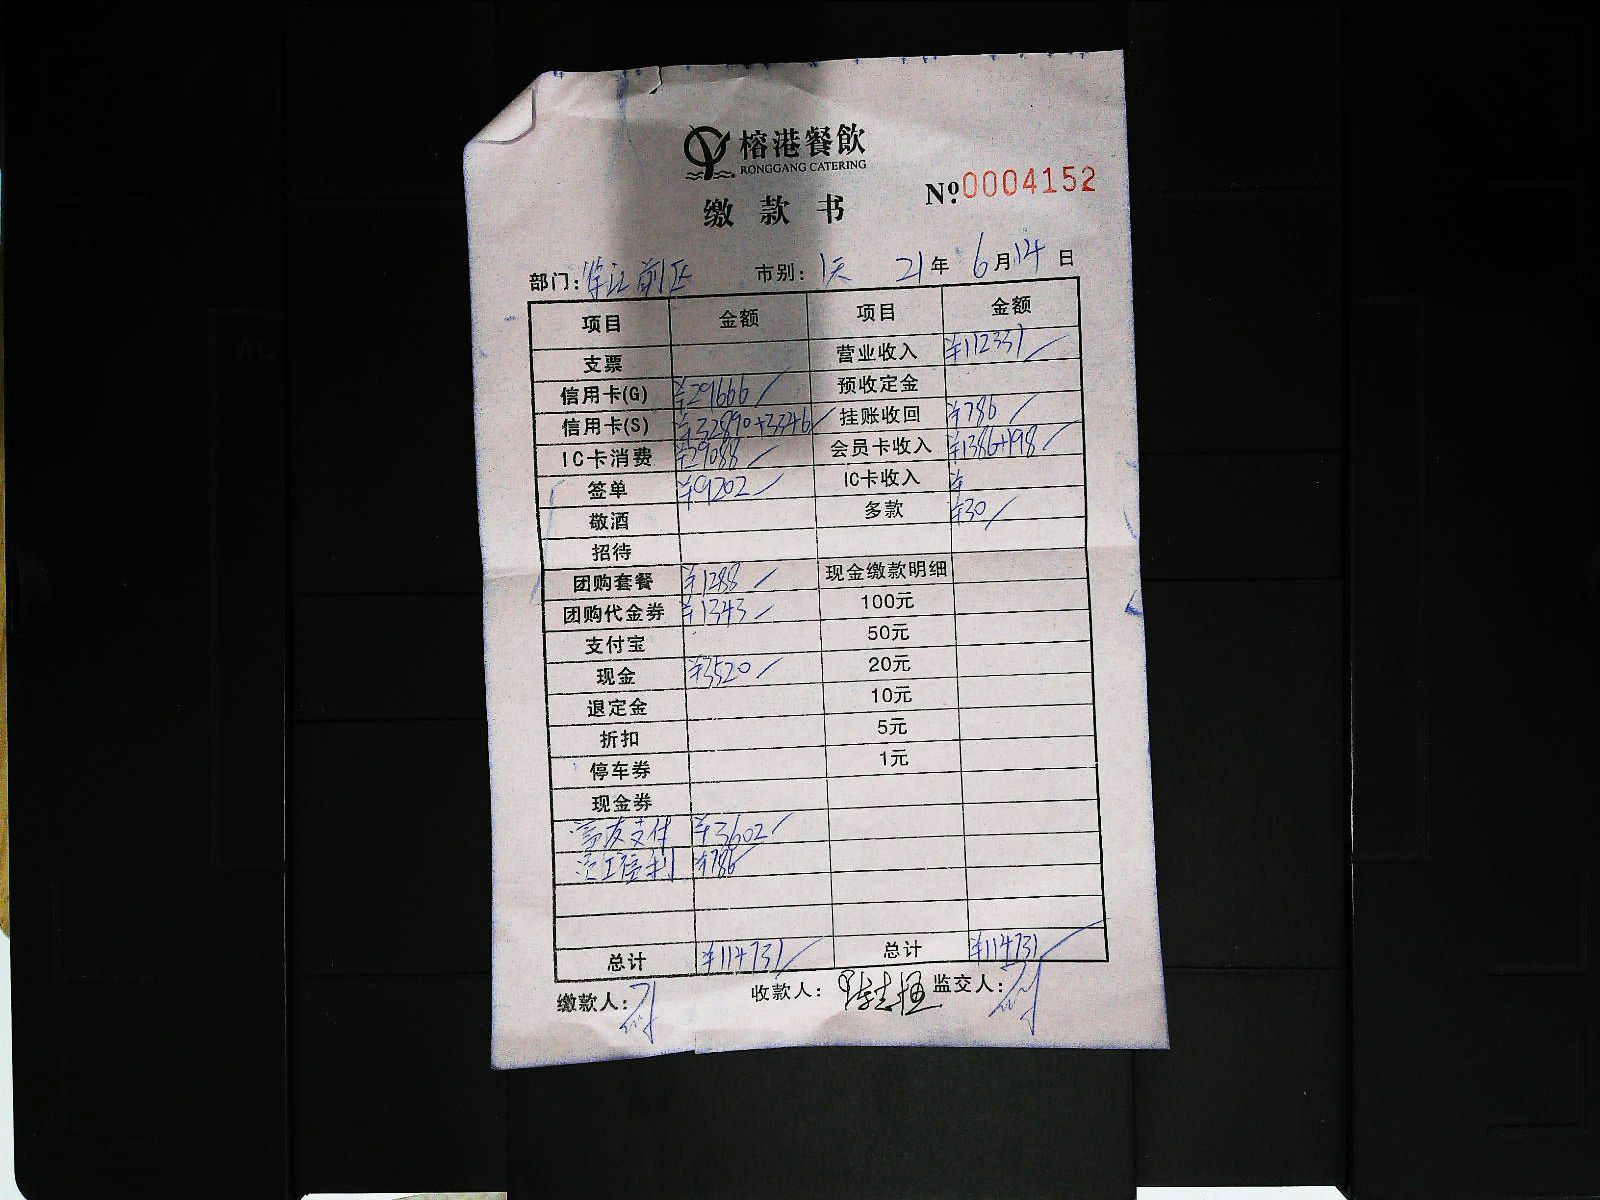 榕港餐飲
RONGGANG CATERING
缴款书
№ 0004152
部门: 江前区 市别: 天 21年 6月 14日
项目 金额 项目 金额
支票 营业收入 ¥112331
信用卡(G) ¥29666 预收定金
信用卡(S) ¥32890+3346 挂账收回 ¥786
IC卡消费 ¥29088 会员卡收入 ¥1386+198
签单 ¥9202 IC卡收入 ¥
敬酒 多款 ¥30
招待
团购套餐 ¥1288 现金缴款明细
团购代金券 ¥1343 100元
支付宝 50元
现金 ¥3520 20元
退定金 10元
折扣 5元
停车券 1元
现金券
富友支付 ¥3602
员工福利 ¥786
总计 ¥114731 总计 ¥114731
缴款人: 收款人: 监交人: